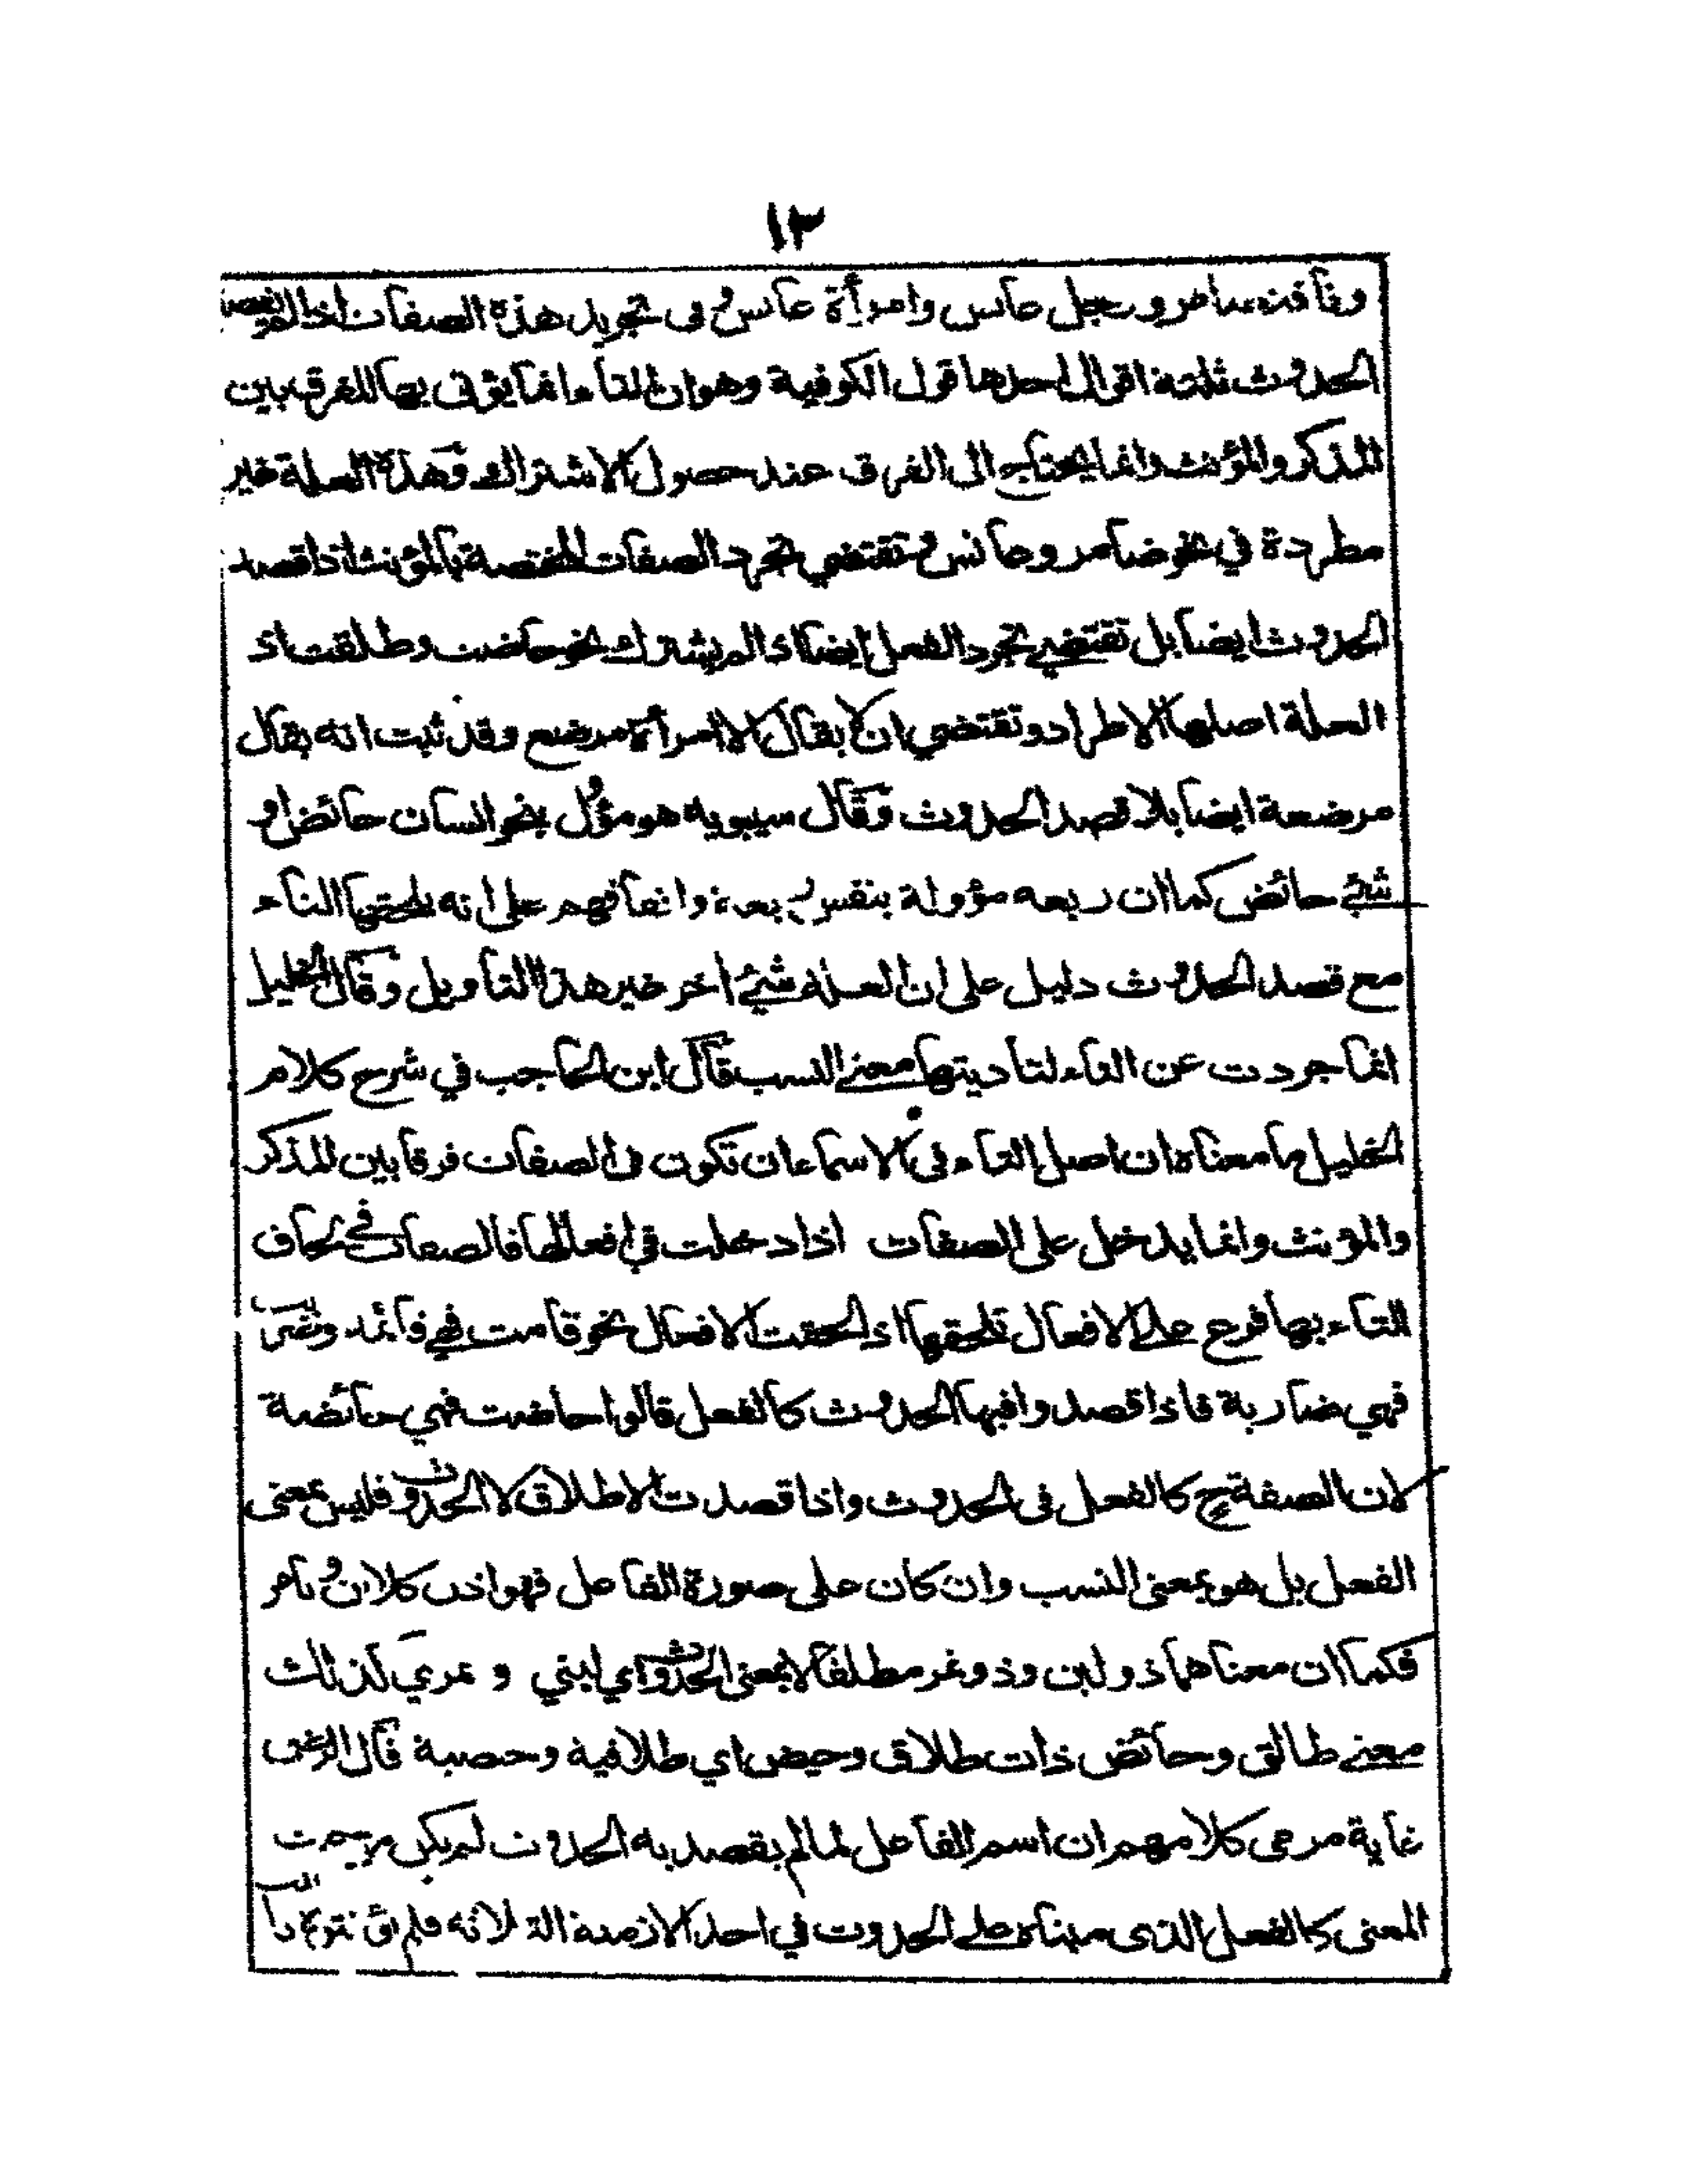 ١٣
وناقة ضامر ورجل عانس وامرأة عانس وفى تجريد هذه الصفات اذا لم يقصد
الحدوث ثلثة اقوال احدها قول الكوفية وهو ان التاء انما يؤتى بها للفرق بين
المذكر والمؤنث وانما يحتاج الى الفرق عند حصول الاشتراك وهذة العلة غير
مطردة في نحو ضامر وعانس وتقتضي تجرد الصفات المختصة بالمؤنث اذا قصد
الحدوث ايضا بل تقتضي تجرد الفعل ايضا اذا لم يشترك نحو حاضت وطلقت اذ
العلة اصلها الاطراد وتقتضي ان لا يقال الا امرأة مرضع وقد ثبت انه يقال
مرضعة ايضا بلا قصد الحدوث وقال سيبويه هو مؤل بنحو انسان حائض او
شئ حائض كما ان ربعه مؤولة بنفس ربعة واتفاقهم على انه يلحقها التاء
مع قصد الحدوث دليل على ان العلة شئ اخر غير هذا التاويل وقال الخليل
انما جردت عن التاء لتاديتها معنى النسب قال ابن الحاجب في شرح كلام
الخليل ما معناه ان اصل التاء فى الاسماء ان تكون فى الصفات فرقا بين المذكر
والمؤنث وانما يدخل على الصفات اذا دخلت في افعالها فالصفات في لحاق
التاء بها فرع على الافعال تلحقها اذا لحقت الافعال نحو قامت فهي قائمة وضربت
فهي ضاربة فاذا قصدوا فيها الحدوث كالفعل قالوا حاضت فهي حائضة
لان الصفة ح كالفعل فى الحدوث واذا قصدت الاطلاق لا الحدوث فليس بمعنى
الفعل بل هو بمعنى النسب وان كان على صورة الفاعل فهو اذن كلابن وتامر
فكما ان معناهما ذو لبن وذو تمر مطلقا لا بمعنى الحدوث اي لبني و تمري كذلك
معنى طالق وحائض ذات طلاق وحيض اي طلاقية وحيضية قال الرضى
غاية مرمى كلامهم ان اسم الفاعل لما لم يقصد به الحدوث لم يكن من حيث
المعنى كالفعل الذى مبناه على الحدوث في احد الازمنة الثلاثة فلم يؤنث